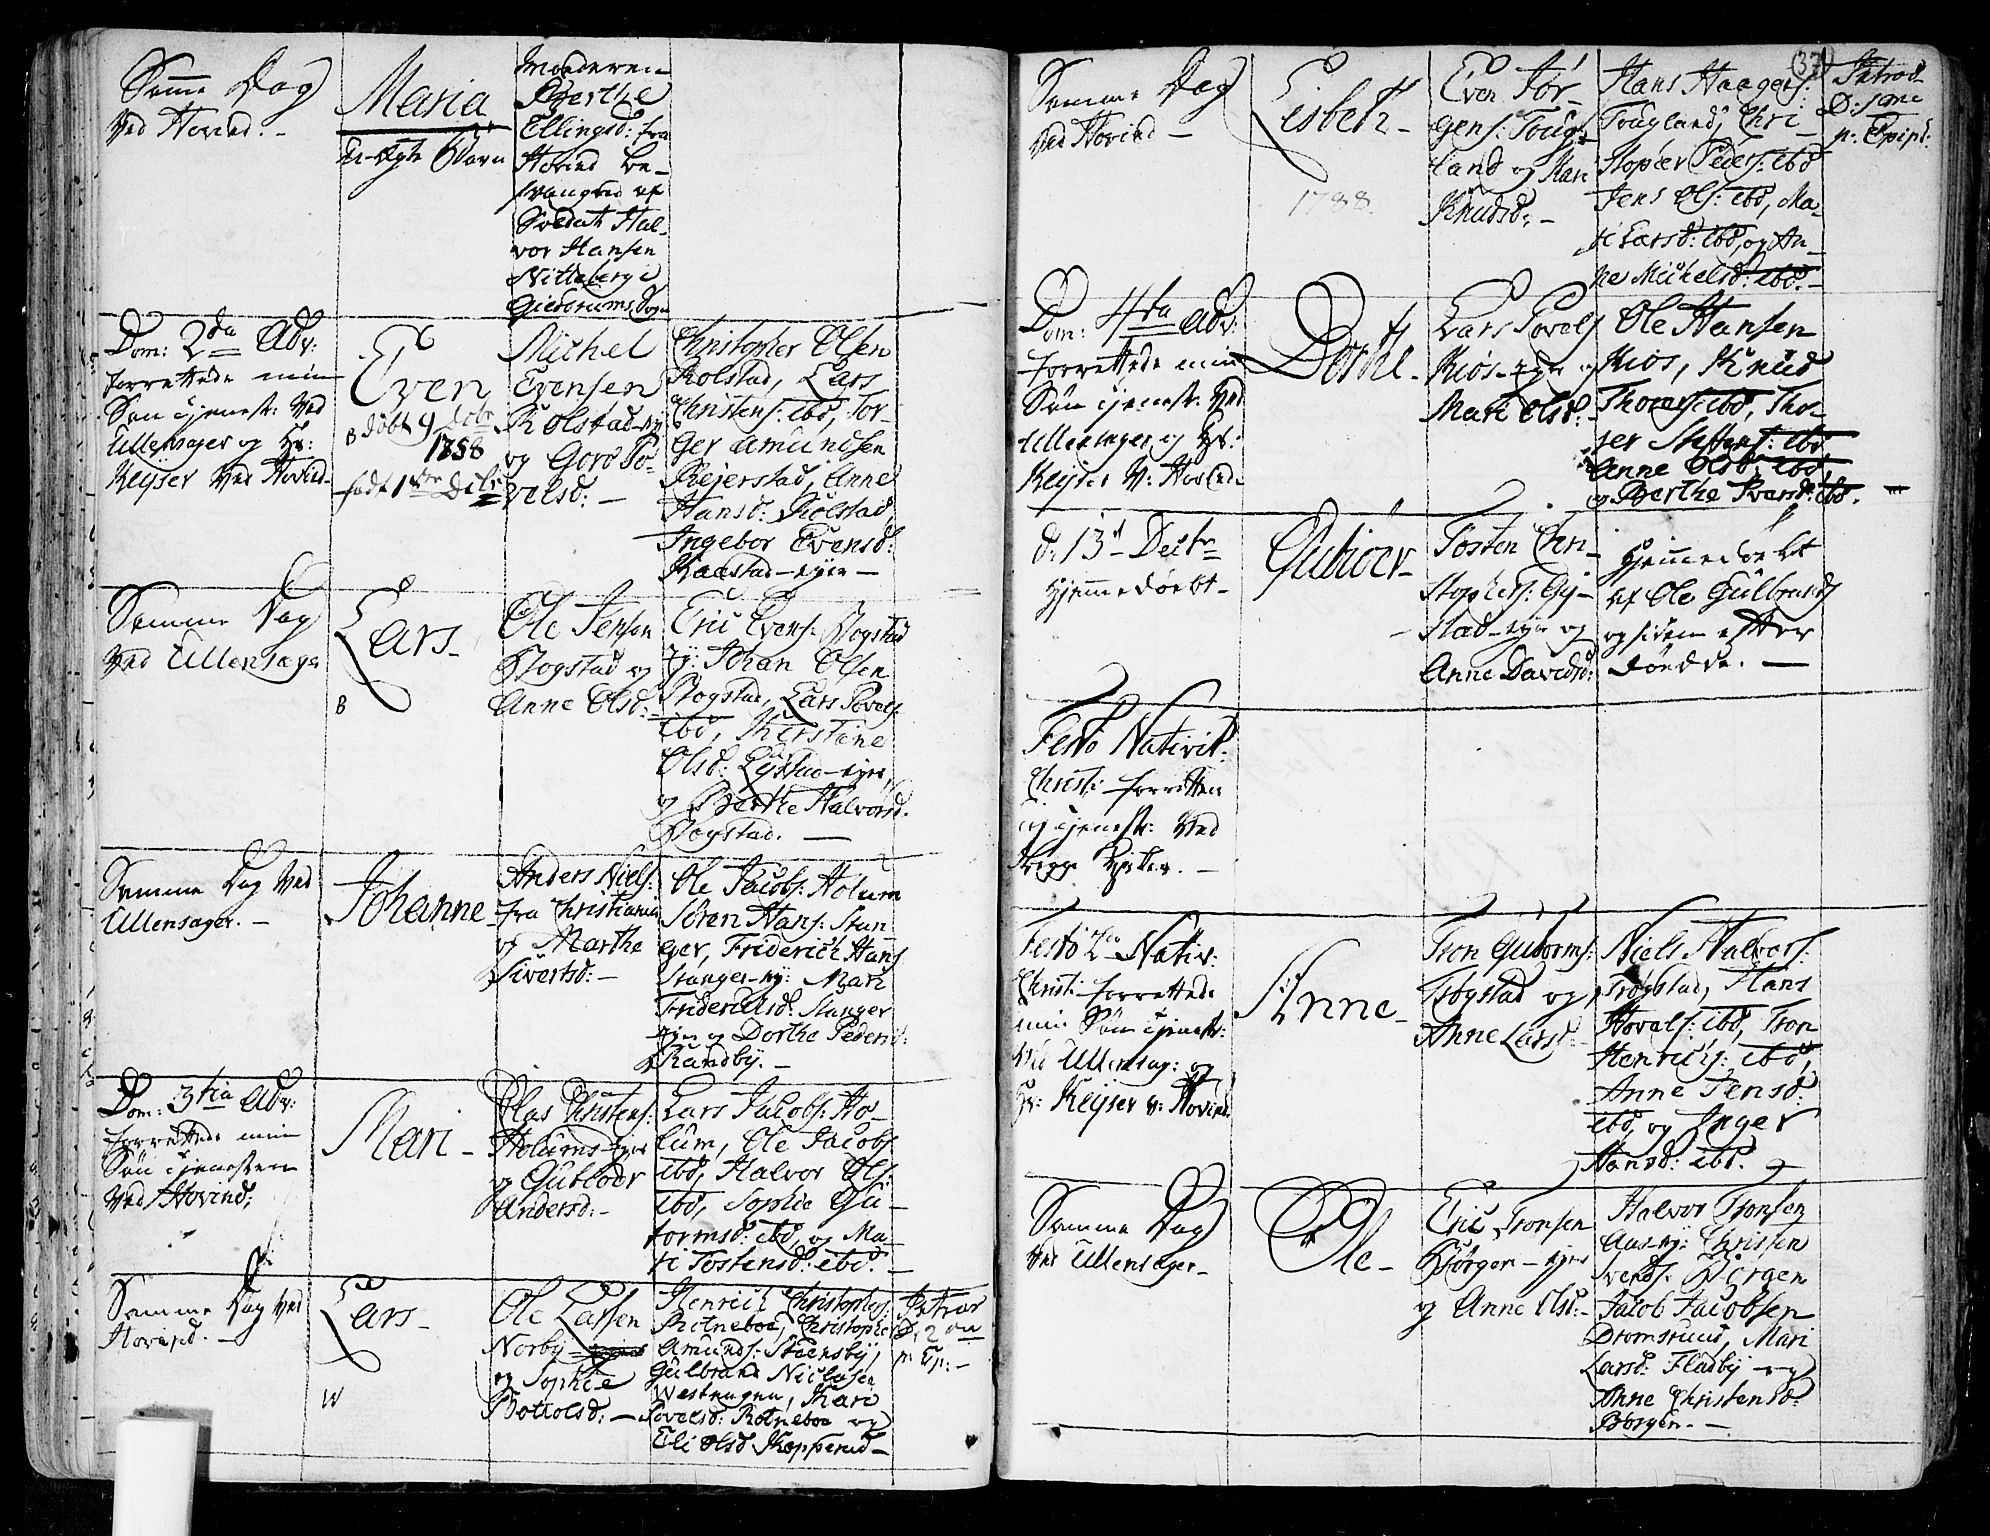 Samme Dag
ved Hovind. -
Maria
u-ægte Barn
Moderen
Berthe
Ellingsd: fra
Hovind be-
svangred af
Soldat Hal-
vor Hansen
Nitteberg i
Giedrums Sogn
Dom: 2da Adv:
forrettede min
Søn Tjenest: ved
Ullensager og Hr:
Keyser ved Hovind.
Even
B døbt 9 Debr
1758
født 1ste Debr
Michel
Evensen
Rolstad-
og Goro Po-
velsd: -
Christopher Olsen
Rolstad, Lars
Christens: ibd, Tor-
ger Amundsen
Rejerstad, Anne
Hansd: Rolstad
Ingebor Evensd:
Kaastad-eyer-
Samme Dag
ved Ullensager
Lars-
B
Ole Jensen
Bogstad og
Anne Olsd:
Eric Evens: Bogstad
ey: Johan Olsen
Bogstad, Lars Povels:
ibd, Kierstine
Olsd: Lystad-eyer,
og Berthe Halvorsd.
Bogstad. -
Samme Dag ved
Ullensager. -
Johanne-
Anders Niels:
fra Christiania
og Marthe
Sivertsd: -
Ole Jacobs: Holum
Søren Hans: Stan-
ger, Friderich Hans
Stanger-ey: Mari
Fridericksd: Stanger
eyer og Dorthe Pedersd:
Randby. -
Dom: 3tia Adv:
forrettede min
Søn Tjenesten
ved Hovind;
Mari-
Olas Christens:
Holums-eyer
og Gubioer
Andersd: -
Lars Jacobs: Ho-
lum, Ole Jacobs
ibd, Halvor Ols:
ibd, Sophie Gu-
tormsd: ibd, og Ma-
ri Tostensd: ibd. -
Samme Dag ved
Hovind. -
Lars-
W
Ole Larsen
Norby-
og Sophie
Botholsd: -
Henrich Christophers:
Rotneboe, Christopher
Amunds: Steensby,
Gulbrand Niclasen
Westengen, Kari
Povelsd: Rotneboe og
Eli Olsd Kopperud-
Introd
D: 2da
p: Ep: -
(37)
Samme Dag
ved Hovind-
Lisbeth-
1788.
Even Jør-
gens: Toug-
land og Kari
Knudsd: -
Hans Haagens:
Tougland, Chri-
stopher Peders: ibd
Jens Ols: ibd, Ma-
ri Larsd: ibd, og An-
ne Michelsd: ibd. -
Introd
D: 1ma
p: Epiph:
Dom: 4ta Adv:
forrettede min
Søn Tjenest: ved
Ullensager og Hr:
Keyser v: Hovind.
Dorthe-
Lars Povels
Kiøs-eyer og
Mari Olsd:
Ole Hansen
Kiøs, Knud
Thoers: ibd, Tho-
ger Steffens: ibd
Anne Olsd: ibd,
og Berthe Svensd: ibd. -
d: 13d Decbr
Hjemmedøbt-
Gubioer-
Tosten Chri-
stophers: Gy-
stad-eyer og
Anne Davidsd:
Hjemmedøbt
af Ole Gulbrands
og siden efter
døedde. -
Festo Nativit:
Christi forretten
ieg Tjenest: ved
begge Kirker. -
Festo 2do Nativ:
Christi forrettede
min Søn Tjenest:
ved Ullensag: og
Hr: Keyser v: Hovind
Anne-
Tron Gutorms:
Trøgstad og
Anne Larsd:
Niels Halvors:
Trøgstad, Hans
Hovels: ibd, Tron
Henrichs: ibd,
Anne Jensd:
ibd, og Inger
Hansd: ibd.
Samme Dag
ved Ullensager-
Ole-
Eric Tronsen
Børgen-eyer
og Anne Olsd:-
Halvor Tronsen
Aas-ey: Christen
Svends: Børgen
Jacob Jacobsen
Dromsruud, Mari
Larsd: Fladby-og
Anne Christensd:
Børgen. -